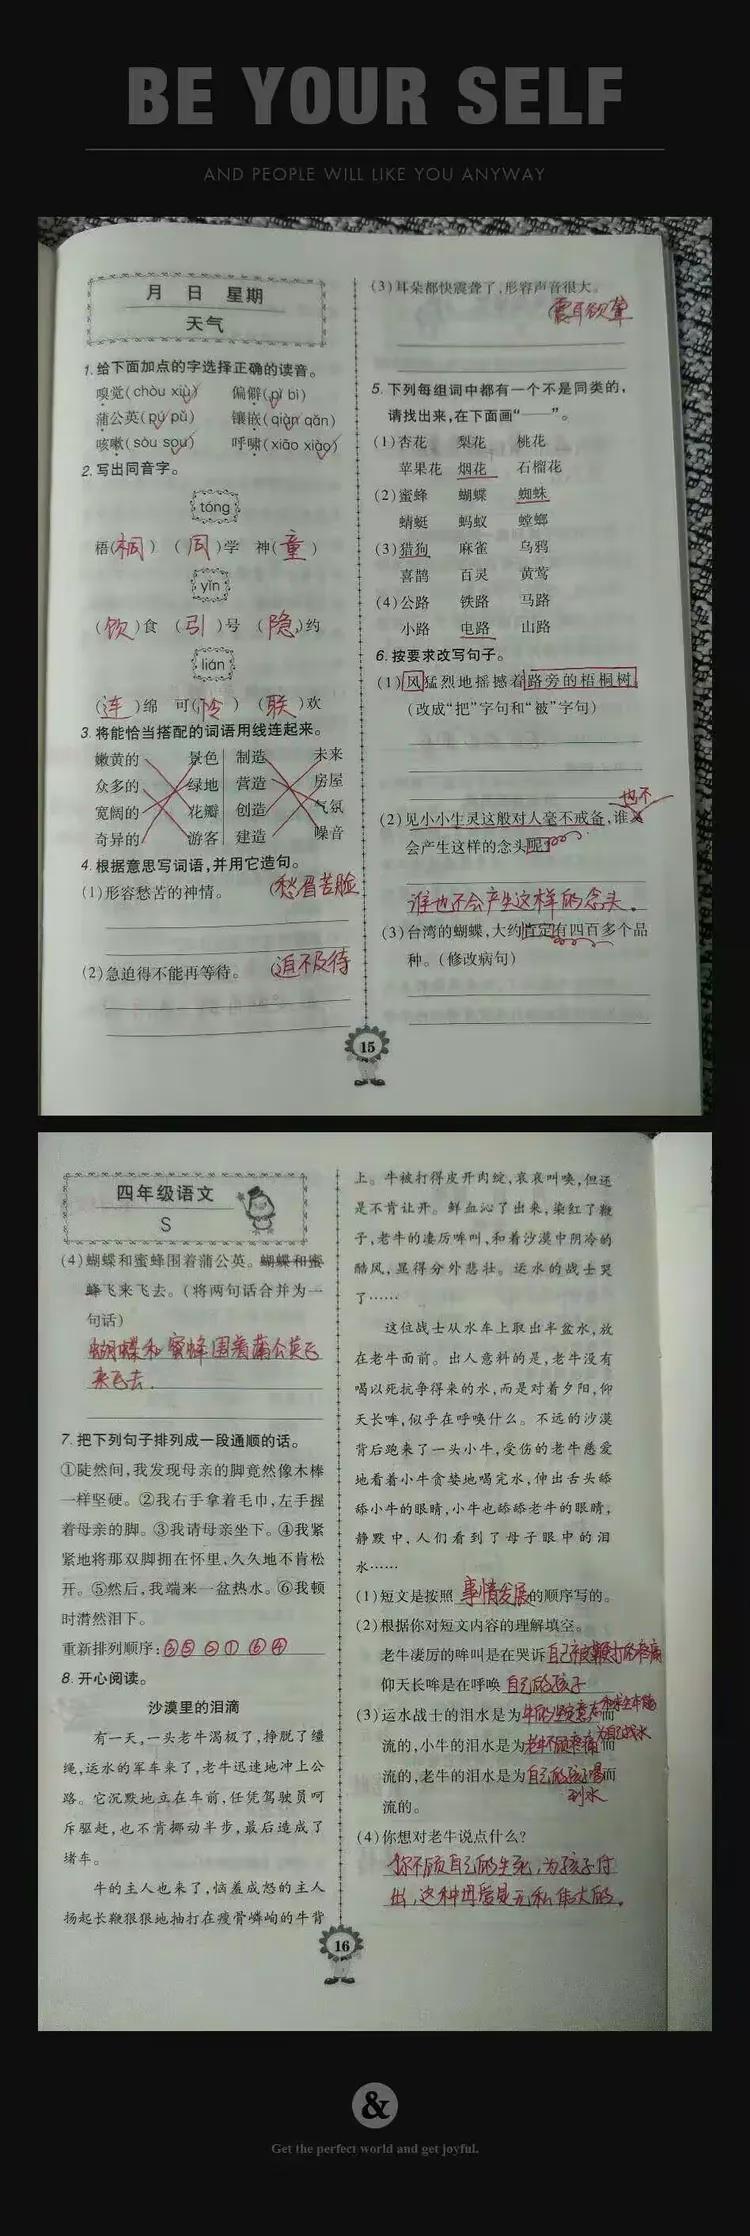 BE YOUR SELF
AND PEOPLE WILL LIKE YOU ANYWAY
月 日 星期
天气
1.给下面加点的字选择正确的读音。
嗅觉(chòu xiù) 偏僻(pì bì)
蒲公英(pú pǔ) 镶嵌(qiàn qān)
咳嗽(sòu sou) 呼啸(xiāo xiào)
2.写出同音字。
tóng
梧(桐) (同)学 神(童)
yǐn
(饮)食 (引)号 (隐)约
lián
(连)绵 可(怜) (联)欢
3.将能恰当搭配的词语用线连起来。
嫩黄的 景色 制造 未来
众多的 绿地 营造 房屋
宽阔的 花瓣 创造 气氛
奇异的 游客 建造 噪音
4.根据意思写词语,并用它造句。
(1)形容愁苦的神情。 (愁眉苦脸
(2)急迫得不能再等待。 (迫不及待
(3)耳朵都快震聋了,形容声音很大。
震耳欲聋
5.下列每组词中都有一个不是同类的,
请找出来,在下面画“——”。
(1)杏花 梨花 桃花
苹果花 烟花 石榴花
(2)蜜蜂 蝴蝶 蜘蛛
蜻蜓 蚂蚁 螳螂
(3)猎狗 麻雀 乌鸦
喜鹊 百灵 黄莺
(4)公路 铁路 马路
小路 电路 山路
6.按要求改写句子。
(1)风猛烈地摇撼着路旁的梧桐树。
(改成“把”字句和“被”字句)
也不
(2)见小小生灵这般对人毫不戒备,谁又
会产生这样的念头呢?
谁也不会产生这样的念头。
(3)台湾的蝴蝶,大约肯定有四百多个品
种。(修改病句)
15
四年级语文
S
(4)蝴蝶和蜜蜂围着蒲公英。蝴蝶和蜜
蜂飞来飞去。(将两句话合并为一
句话)
蝴蝶和蜜蜂围着蒲公英飞
来飞去.
7.把下列句子排列成一段通顺的话。
①陡然间,我发现母亲的脚竟然像木棒
一样坚硬。②我右手拿着毛巾,左手握
着母亲的脚。③我请母亲坐下。④我紧
紧地将那双脚拥在怀里,久久地不肯松
开。⑤然后,我端来一盆热水。⑥我顿
时潸然泪下。
重新排列顺序:③⑤②①⑥④
8.开心阅读。
沙漠里的泪滴
有一天,一头老牛渴极了,挣脱了缰
绳,运水的军车来了,老牛迅速地冲上公
路。它沉默地立在车前,任凭驾驶员呵
斥驱赶,也不肯挪动半步,最后造成了
堵车。
牛的主人也来了,恼羞成怒的主人
扬起长鞭狠狠地抽打在瘦骨嶙峋的牛背
上。牛被打得皮开肉绽,哀哀叫唤,但还
是不肯让开。鲜血沁了出来,染红了鞭
子,老牛的凄厉哞叫,和着沙漠中阴冷的
酷风,显得分外悲壮。运水的战士哭
了……
这位战士从水车上取出半盆水,放
在老牛面前。出人意料的是,老牛没有
喝以死抗争得来的水,而是对着夕阳,仰
天长哞,似乎在呼唤什么。不远的沙漠
背后跑来了一头小牛,受伤的老牛慈爱
地看着小牛贪婪地喝完水,伸出舌头舔
舔小牛的眼睛,小牛也舔舔老牛的眼睛,
静默中,人们看到了母子眼中的泪
水……
(1)短文是按照 事情发展的顺序写的。
(2)根据你对短文内容的理解填空。
老牛凄厉的哞叫是在哭诉自己被鞭打的疼痛
仰天长哞是在呼唤 自己的孩子
(3)运水战士的泪水是为牛的坚定意志和求生本能而
流的,小牛的泪水是为老牛不顾疼痛为自己找水而
流的,老牛的泪水是为自己的孩子喝而
到水
流的。
(4)你想对老牛说点什么?
你不顾自己的生死,为孩子付
出,这种母爱是无私伟大的。
16
&
Get the perfect world and get joyful.